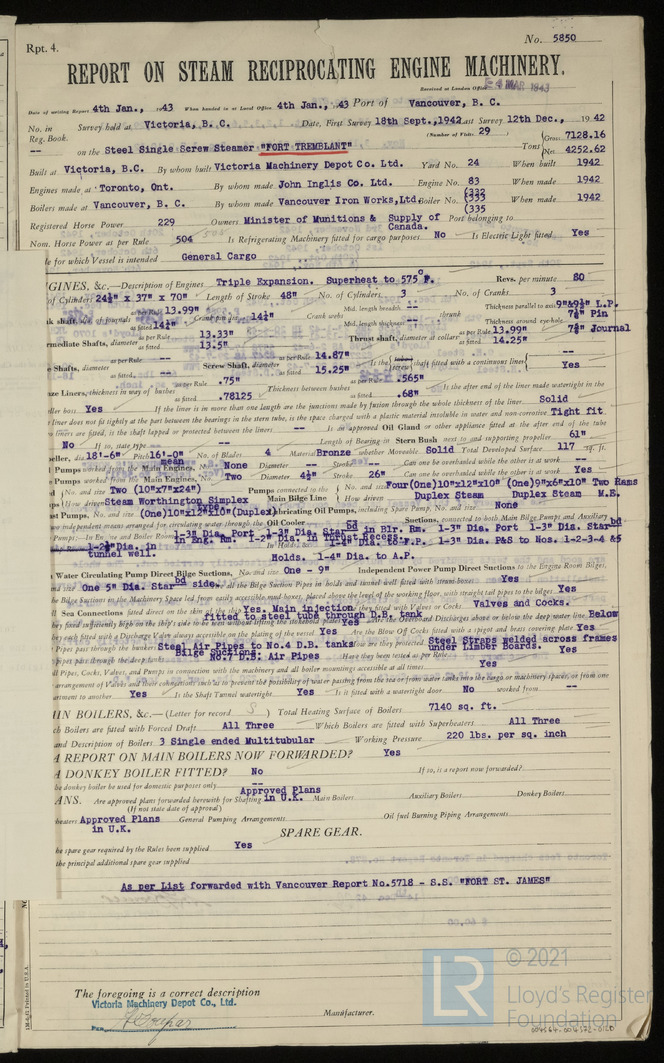 Rpt. 4.
No. 5850
REPORT ON STEAM RECIPROCATING ENGINE MACHINERY.
Received at London Office -4 MAR 1943
Date of writing Report 4th Jan., 1943 When handed in at Local Office 4th Jan., 1943 Port of Vancouver, B. C.
No. in Reg. Book. Survey held at Victoria, B.C. Date, First Survey 18th Sept., 1942 Last Survey 12th Dec., 1942
(Number of Visits 29
-- on the Steel Single Screw Steamer "FORT TREMBLANT" Tons Gross 7128.16 Net 4252.62
Built at Victoria, B.C. By whom built Victoria Machinery Depot Co. Ltd. Yard No. 24 When built 1942
Engines made at Toronto, Ont. By whom made John Inglis Co. Ltd. Engine No. 83 When made 1942
Boilers made at Vancouver, B. C. By whom made Vancouver Iron Works, Ltd. Boiler No. (332 (333 (335 When made 1942
Registered Horse Power 229 Owners Minister of Munitions & Supply of Canada. Port belonging to
Nom. Horse Power as per Rule 504 Is Refrigerating Machinery fitted for cargo purposes No Is Electric Light fitted Yes
for which Vessel is intended General Cargo
GINES, &c.—Description of Engines Triple Expansion. Superheat to 575°F. Revs. per minute 80
of Cylinders 24½" x 37" x 70" Length of Stroke 48" No. of Cylinders 3 No. of Cranks 3
shaft, dia. of journals as per Rule 13.99" as fitted 14¼" Crank pin 14¼" Crank webs Mid. length breadth -- Mid. length thickness -- shrunk Thickness parallel to axis 9"&9½" L.P. Thickness around eye-hole 7⅛" Pin 7⅛" Journal
rmediate Shafts, diameter as per Rule 13.33" as fitted 13.5" Thrust shaft, diameter at collars as per Rule 13.99" as fitted 14.25"
e Shafts, diameter as per Rule -- as fitted -- Screw Shaft, diameter as per Rule 14.67" as fitted 15.25" Is the screw shaft fitted with a continuous liner Yes
ze Liners, thickness in way of bushes as per Rule .75" as fitted .78125 Thickness between bushes as per Rule .565" as fitted .68" Is the after end of the liner made watertight in the
ller boss Yes If the liner is in more than one length are the junctions made by fusion through the whole thickness of the liner Solid
liner does not fit tightly at the part between the bearings in the stern tube, is the space charged with a plastic material insoluble in water and non-corrosive Tight fit
liners are fitted, is the shaft lapped or protected between the liners -- Is an approved Oil Gland or other appliance fitted at the after end of the tube
No If so, state type -- Length of Bearing in Stern Bush next to and supporting propeller 61"
eller, dia 18'-6" Pitch 16'-0" mean No. of Blades 4 Material Bronze whether Moveable Solid Total Developed Surface 117 sq. ft.
Pumps worked from the Main Engines, No. None Diameter -- Stroke -- Can one be overhauled while the other is at work --
Pumps worked from the Main Engines, No. Two Diameter 4½" Stroke 26" Can one be overhauled while the other is at work Yes
No. and size Two (10"x7"x24") Pumps connected to the Main Bilge Line No. and size Four(One)10"x12"x10" (One)9"x6"x10" Two Rams
How driven Steam Worthington Simplex type How driven Duplex Steam Duplex Steam M.E.
st Pumps, No. and size (One)10"x12"x10"(Duplex) Lubricating Oil Pumps, including Spare Pump, No. and size None
independent means arranged for circulating water through the Oil Cooler -- Suctions, connected to both Main Bilge Pumps and Auxiliary
Pumps:—In Engine and Boiler Room 1-3" Dia. Port 1-3" Dia. Starbd in Blr. Rm. 1-3" Dia. Port 1-3" Dia. Starbd
in Eng. Rm. 1-2" Dia. in Thrust Recess
1-2½" Dia. in tunnel well. In Holds, &c. 1-4" Dia. F.P. 1-3" Dia. P&S to Nos. 1-2-3-4 &5
Holds. 1-4" Dia. to A.P.
Water Circulating Pump Direct Bilge Suctions, No. and size One - 9" Independent Power Pump Direct Suctions to the Engine Room Bilges,
One 5" Dia. Starbd side. Are all the Bilge Suction Pipes in holds and tunnel well fitted with strum-boxes Yes
the Bilge Suctions in the Machinery Space led from easily accessible mud-boxes, placed above the level of the working floor, with straight tail pipes to the bilges Yes
Sea Connections fitted direct on the skin of the ship Yes. Main injection fitted to steel tube through D.B. tank Are they fitted with Valves or Cocks Valves and Cocks.
they fixed sufficiently high on the ship's side to be seen without lifting the stokehold plates Yes Are the Overboard Discharges above or below the deep water line Below
they each fitted with a Discharge Valve always accessible on the plating of the vessel Yes Are the Blow Off Cocks fitted with a spigot and brass covering plate Yes
Pipes pass through the bunkers Steel Air Pipes to No.4 D.B. tanks Bilge Suctions How are they protected Steel Straps welded across frames under Limber Boards.
pipes pass through the deep tanks No.7 D.B. Air Pipes Have they been tested as per Rule Yes
ll Pipes, Cocks, Valves, and Pumps in connection with the machinery and all boiler mountings accessible at all times Yes
arrangement of Valves and their connections such as to prevent the possibility of water passing from the sea or from water tanks into the cargo or machinery spaces, or from one
artment to another Yes Is the Shaft Tunnel watertight Yes Is it fitted with a watertight door No worked from --
IN BOILERS, &c.—(Letter for record S ) Total Heating Surface of Boilers 7140 sq. ft.
ch Boilers are fitted with Forced Draft All Three Which Boilers are fitted with Superheaters All Three
and Description of Boilers 3 Single ended Multitubular Working Pressure 220 lbs. per sq. inch
A REPORT ON MAIN BOILERS NOW FORWARDED? Yes
A DONKEY BOILER FITTED? No If so, is a report now forwarded?
he donkey boiler be used for domestic purposes only --
ANS. Are approved plans forwarded herewith for Shafting Approved Plans in U.K. Main Boilers Auxiliary Boilers Donkey Boilers
(If not state date of approval)
heaters Approved Plans in U.K. General Pumping Arrangements Oil fuel Burning Piping Arrangements
SPARE GEAR.
he spare gear required by the Rules been supplied Yes
the principal additional spare gear supplied
As per List forwarded with Vancouver Report No.5718 - S.S. "FORT ST. JAMES"
The foregoing is a correct description
Victoria Machinery Depot Co., Ltd.
Per
Manufacturer.
© 2021
LR
Lloyd's Register
Foundation
004564-004572-0120